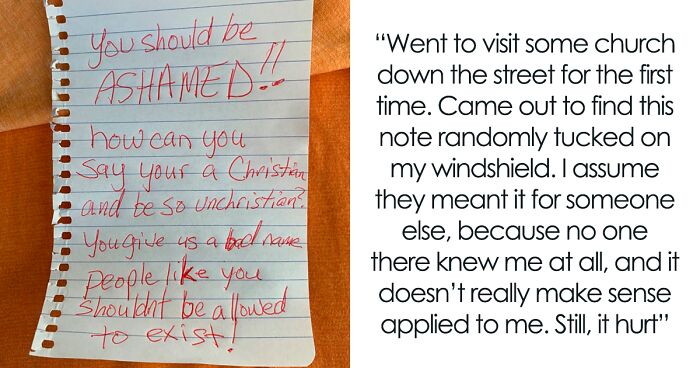 You should be
ASHAMED!!
how can you
say your a Christian
and be so unchristian?
You give us a bad name
people like you
shouldnt be allowed
to exist!
“Went to visit some church
down the street for the first
time. Came out to find this
note randomly tucked on
my windshield. I assume
they meant it for someone
else, because no one
there knew me at all, and it
doesn’t really make sense
applied to me. Still, it hurt”